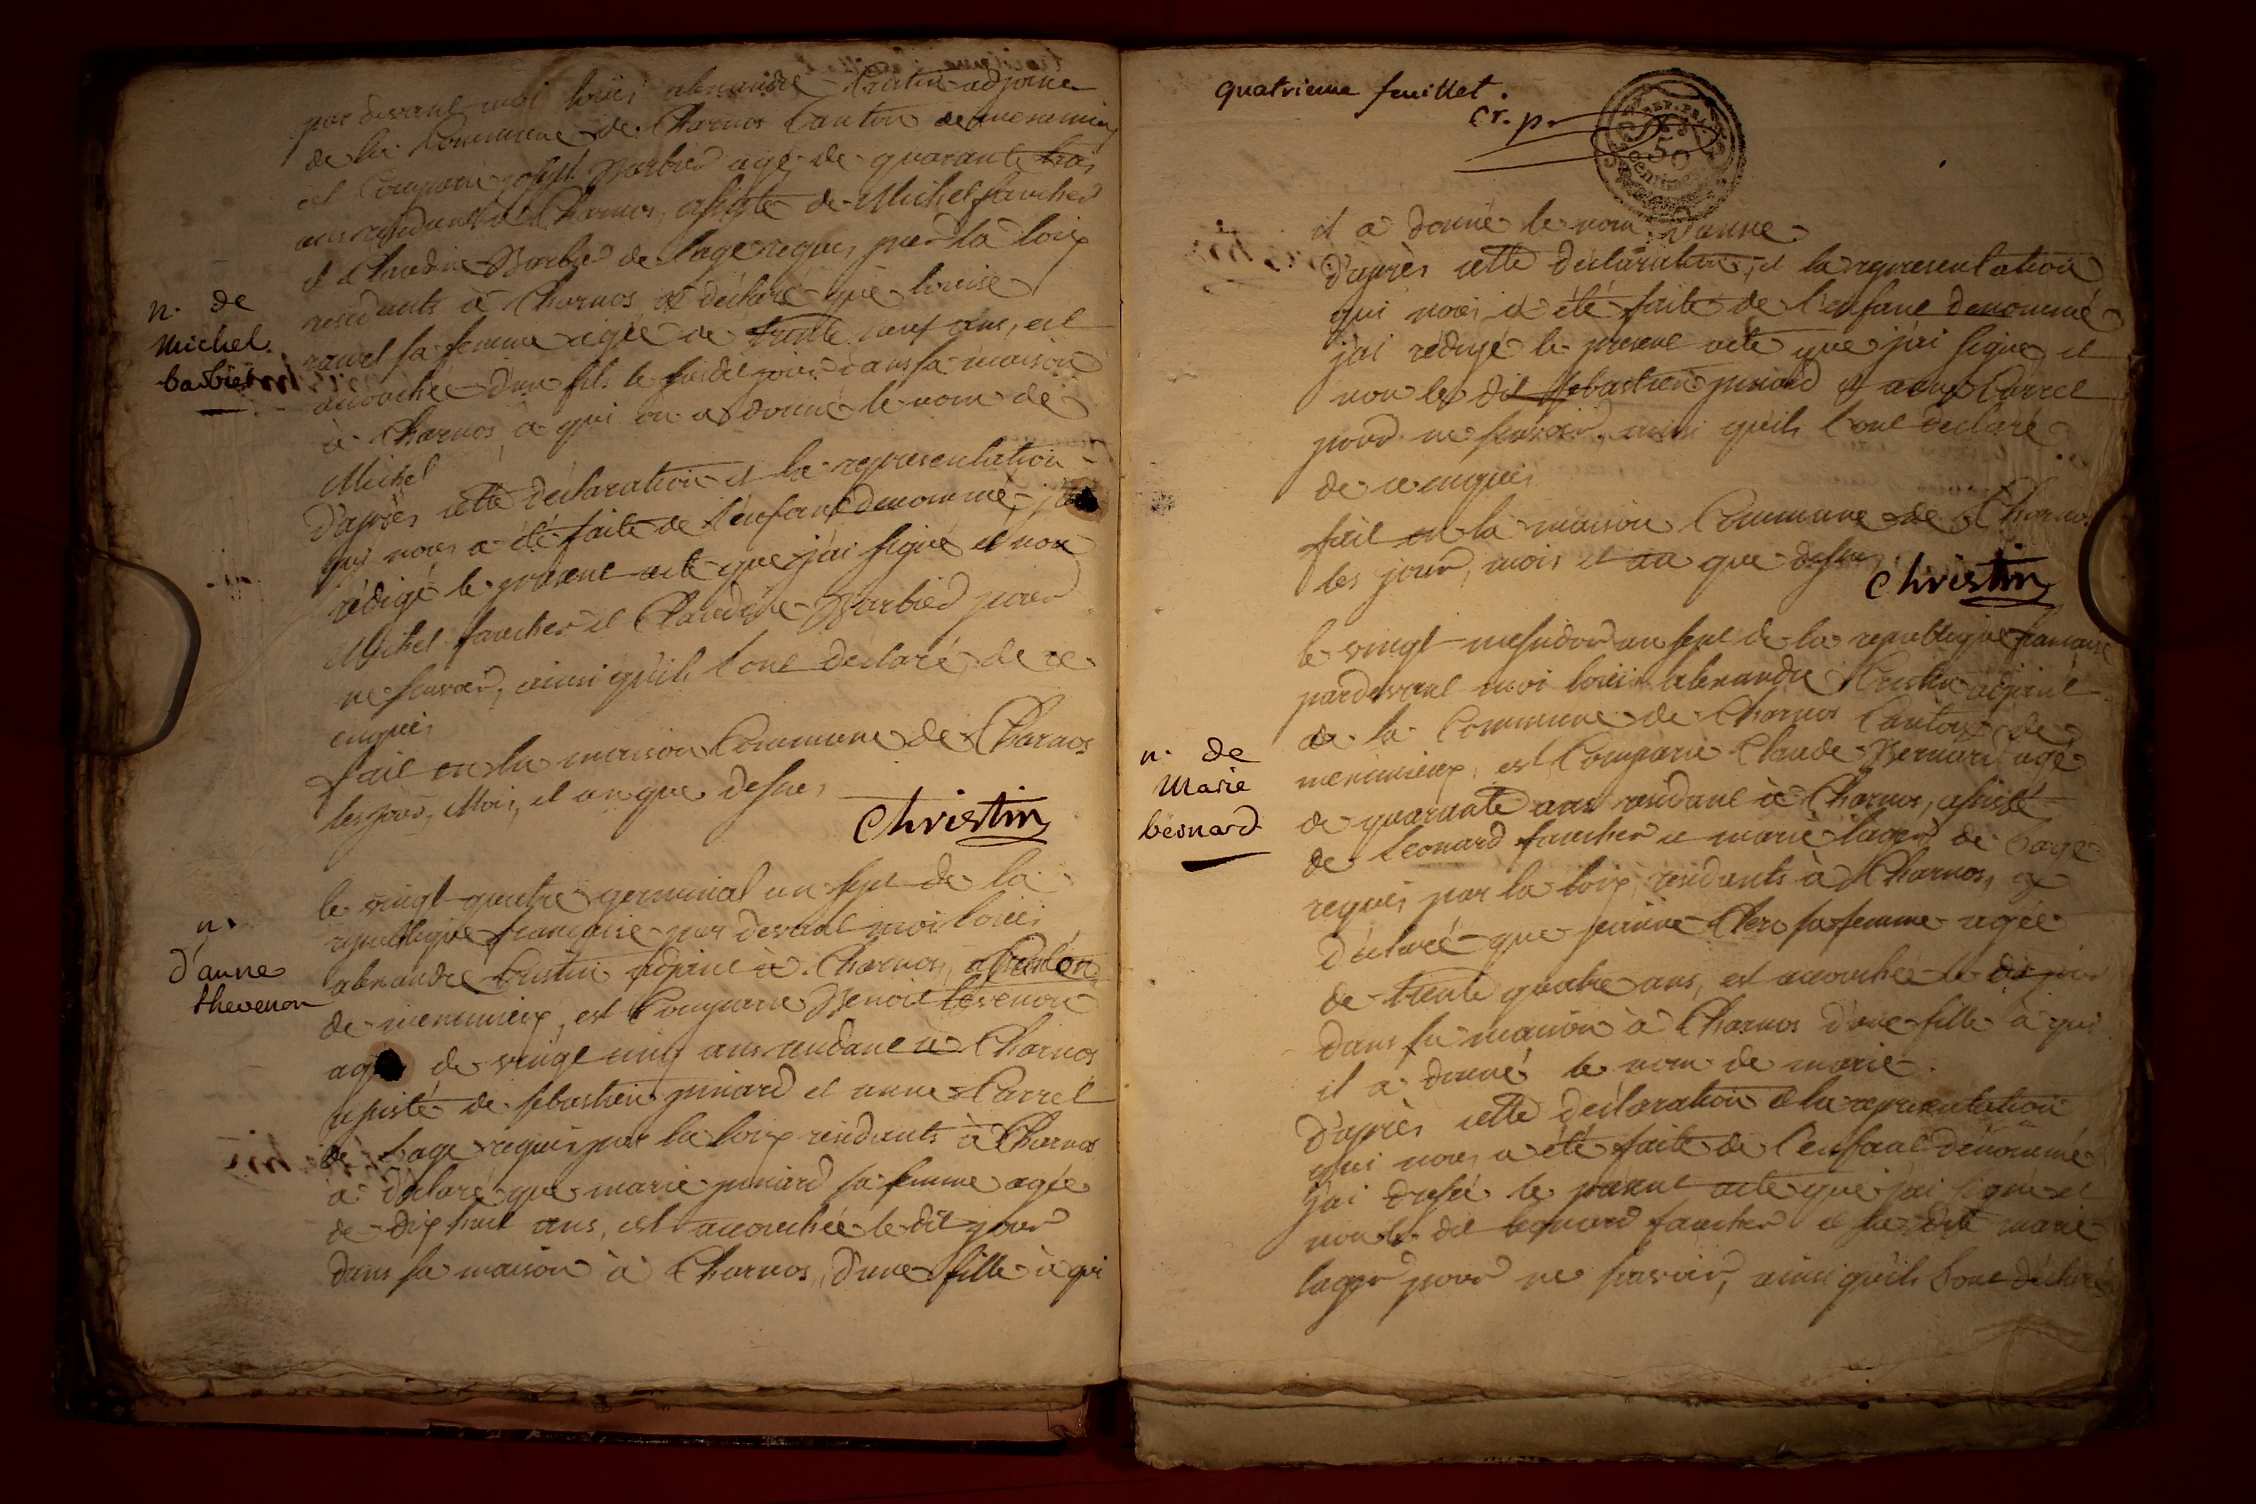 par devant moi loüis alexandre Cristin adjoint
de la Commune de Charnos Canton de meximieux
est Comparu joseph Barbier agé de quarante trois
ans residant à Charnos, assisté de Michel faucher
et Claudine Barbier de l'age requis par la loix
residents à Charnos a déclaré que louise
sa femme agée de trente neuf ans, est
accouchée d'un fils le susdit jour dans sa maison
à Charnos, à qui on a donné le nom de
Michel
n. de
Michel
barbier
D'après cette déclaration et la representation
qui nous a été faite de l'enfant denommé j'ai
rédigé le present acte que j'ai signé et non
Michel faucher et Claudine Barbier pour
ne savoir, ainsi qu'ils l'ont declaré de ce
enquis
fait en la maison Commune de Charnos
les jour, Mois, et an que dessus
Christin
n.
d'anne
thevenon
le vingt quatre germinal an sept de la
republique française par devant moi loüis
alexandre Cristin adjoint à Charnos,
de meximieux, est Comparu Benoit tevenon
agé de vingt cinq ans residant à Charnos
assisté de sebastien juinard et anne Carrel
de l'age requis par la loix residents à Charnos
a déclaré que marie juinard sa femme agée
de dix huit ans, est accouchée le dit jour
dans sa maison à Charnos, d'une fille à qui
quatrieme feuillet.
cr. p.
50
centimes
il a donné le nom d'anne
D'après cette déclaration, et la representation
qui nous a été faite de l'enfant denommé
j'ai rédigé le present acte que j'ai signé, et
non les dit sebastien juinard et anne Carrel
pour ne savoir, ainsi qu'ils l'ont declaré
de ce enquis
fait en la maison Commune de Charnos
les jour, mois et an que dessus
Christin
n. de
Marie
bernard
le vingt messidor an sept de la republique francaise
pardevant moi loüis alexandre Cristin adjoint
de la Commune de Charnos Canton de
meximieux, est Comparu Claude Bernard agé
de quarante ans residant à Charnos, assisté
de leonard faucher et marie lager de l'age
requis par la loix, residents à Charnos, a
déclaré que jeanne Clerc sa femme agée
de trente quatre ans, est accouchée le dit jour
dans sa maison à Charnos d'une fille à qui
il a donné le nom de marie.
D'après cette declaration et la representation
qui nous a été faite de l'enfant dénommé
j'ai dressé le present acte que j'ai signé et
non le dit leonard faucher et la dite marie
lager pour ne savoir, ainsi qu'ils l'ont déclaré